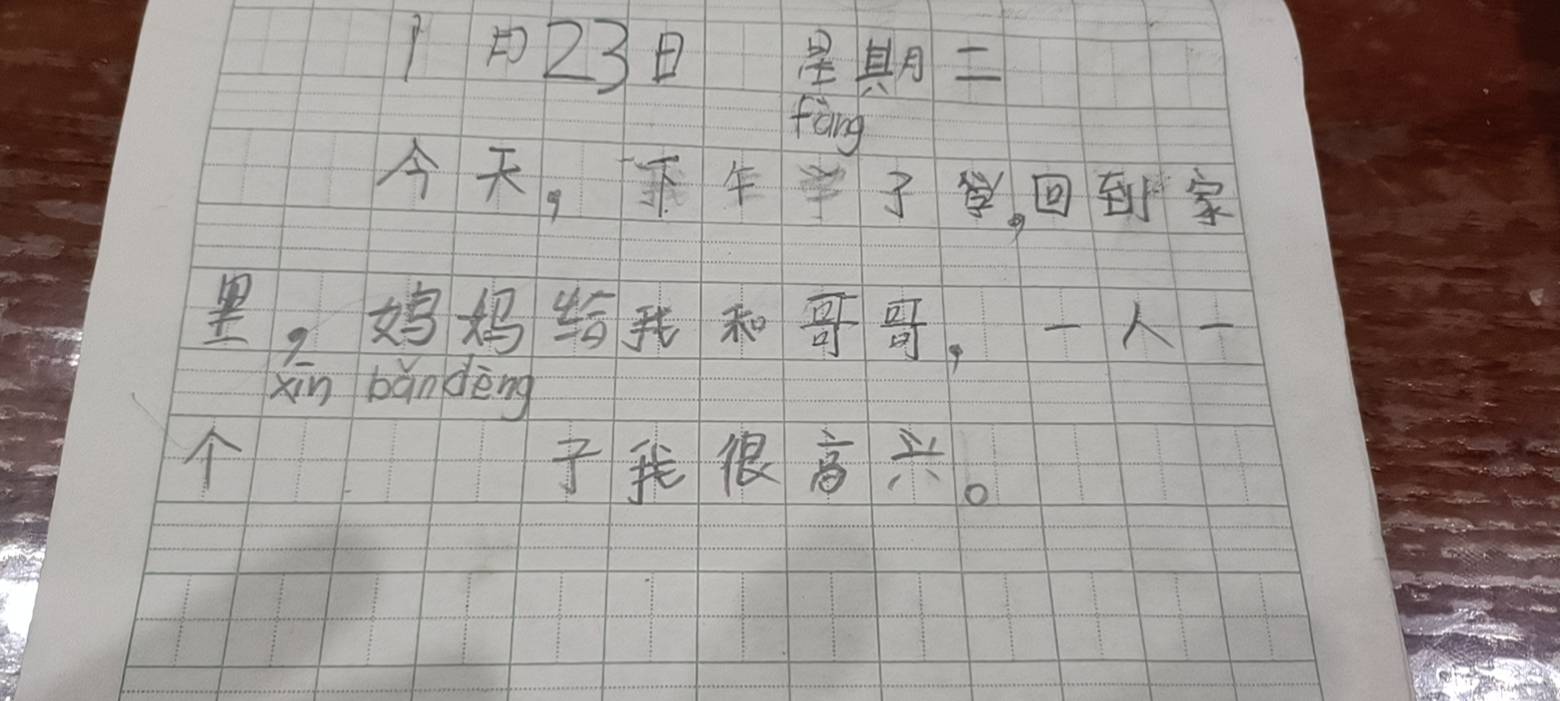 1月23日 星期二
fàng
今天，下午 了学，回到家
里，妈妈给我和哥哥，一人一
xīn bǎndèng
个 子我很高兴。